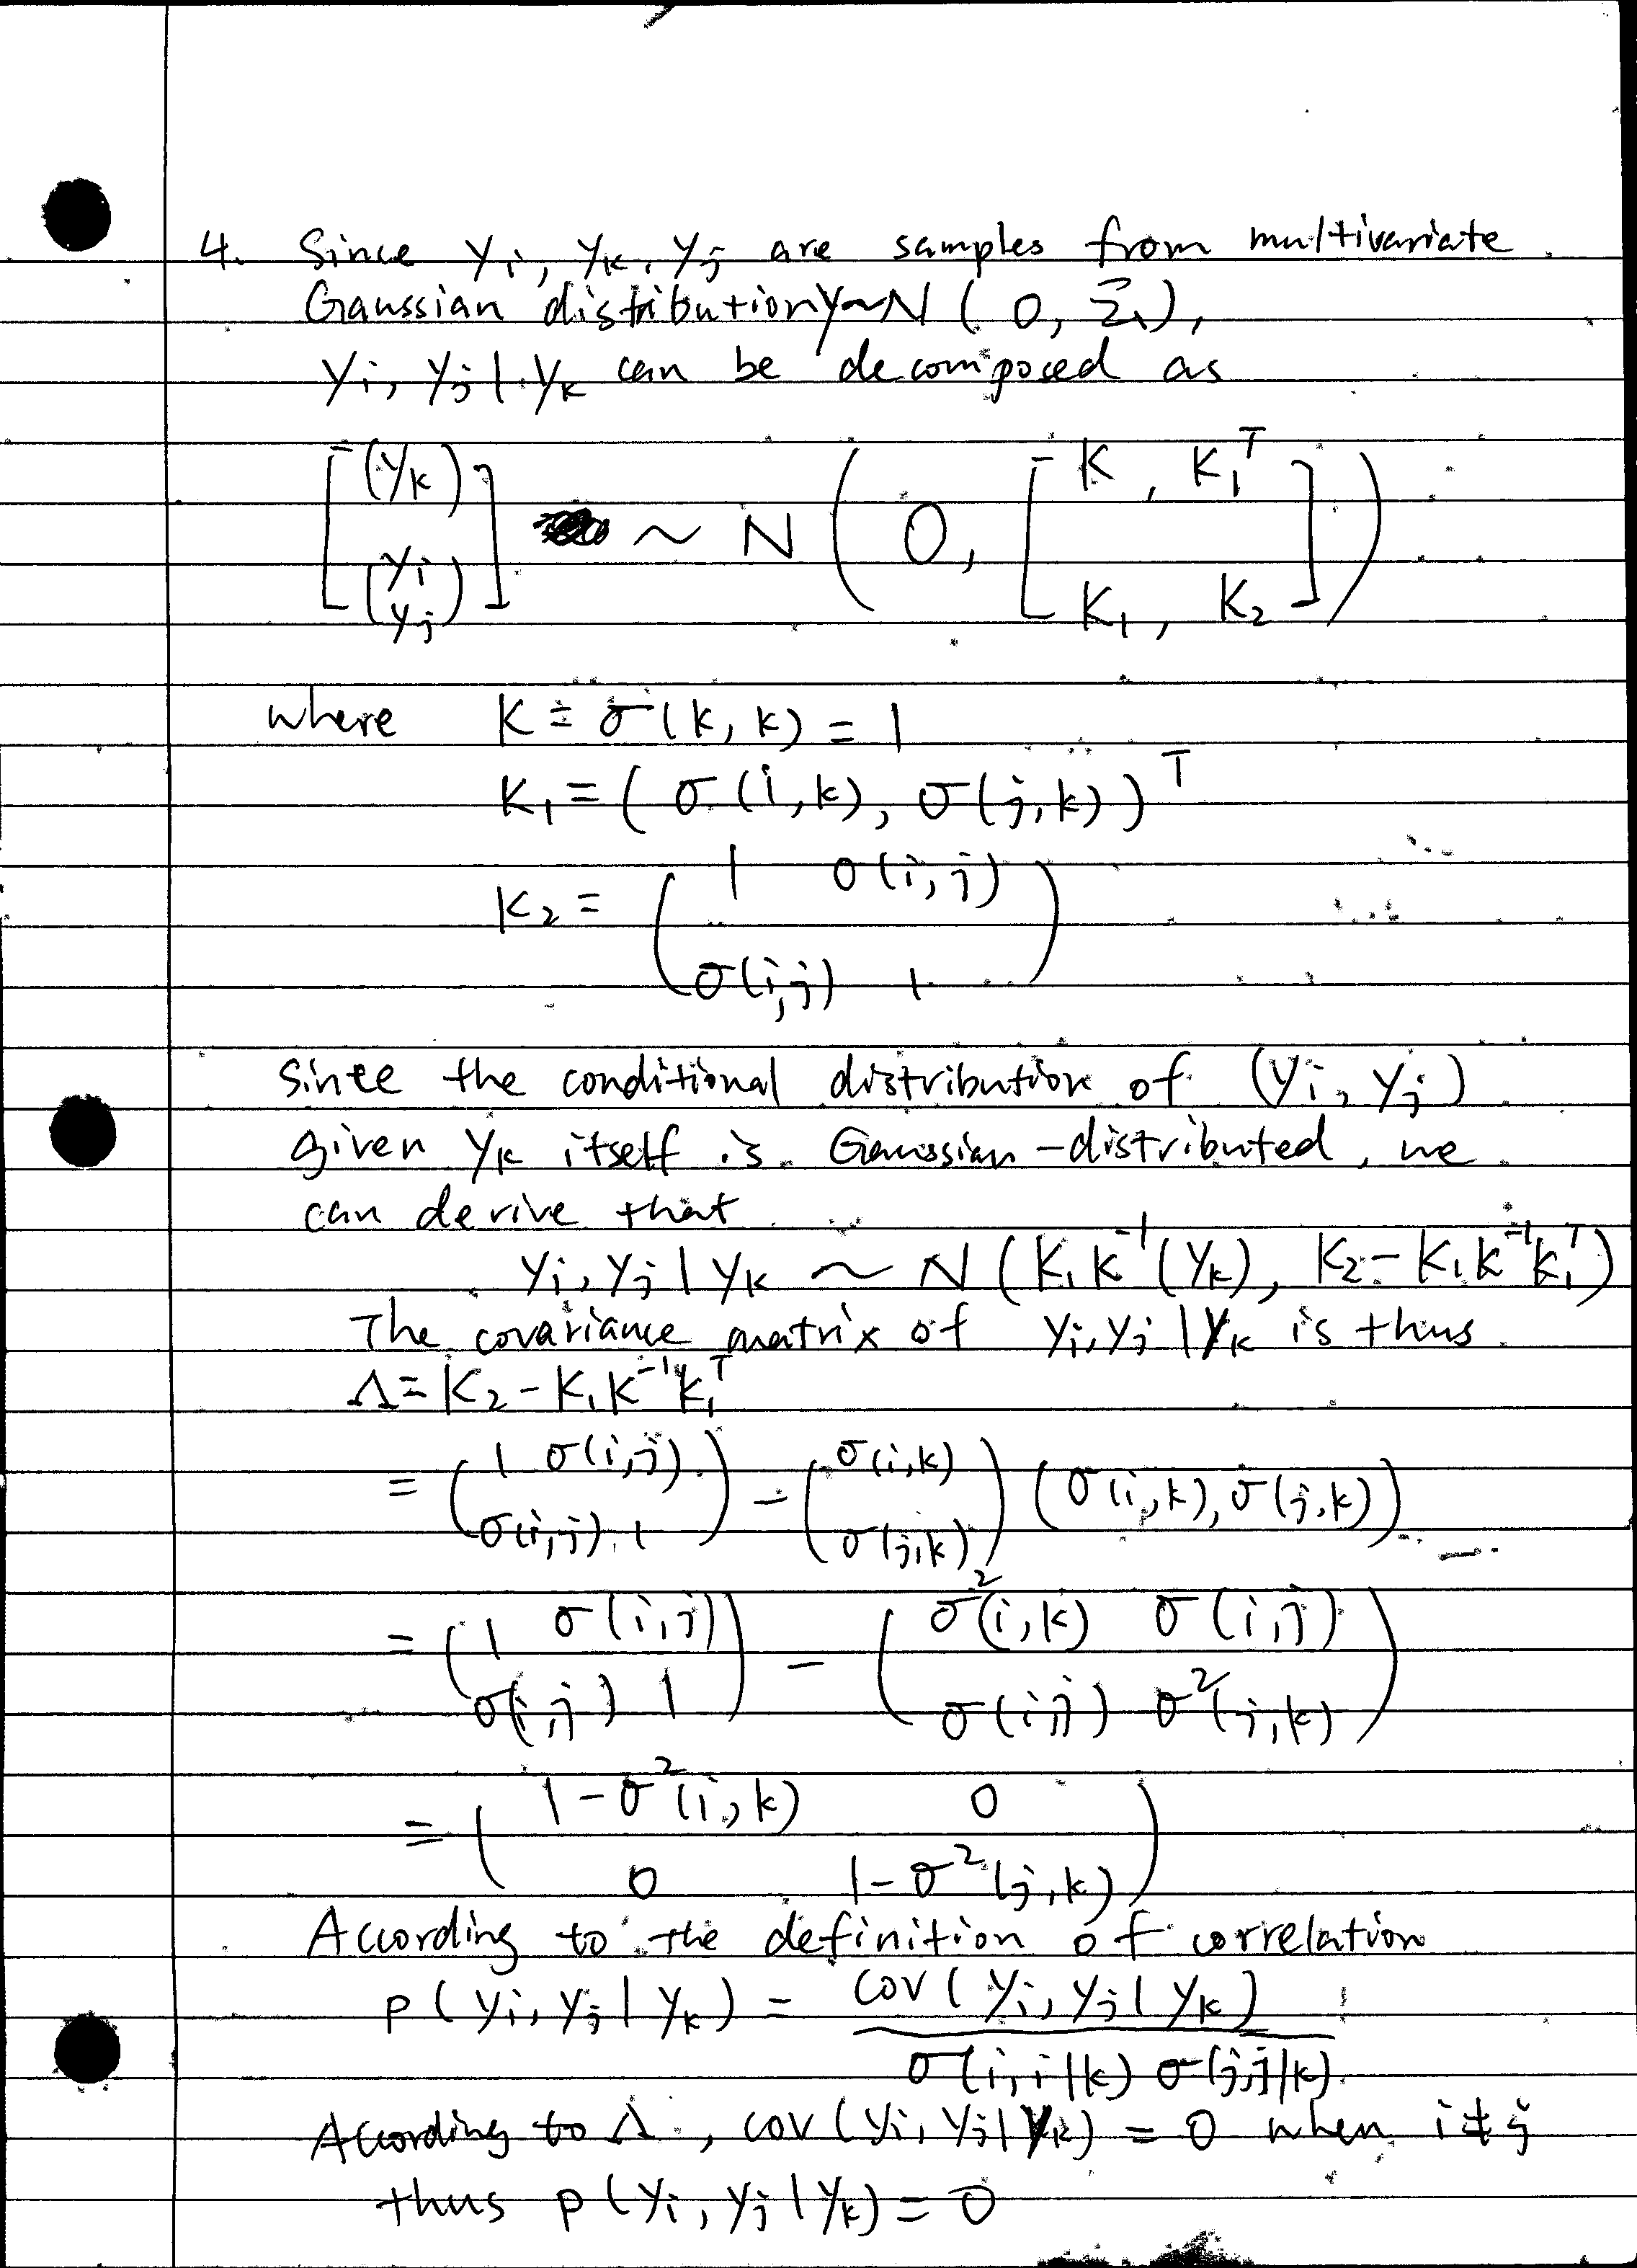 4. Since yi, yk, yj are samples from multivariate
Gaussian distribution y~N ( 0, Σ1),
yi, yj | yk can be decomposed as
[ (yk) (yi yj) ] ~ N ( 0, [ K, K1^T
K1, K2 ] )
where K = σ(k, k) = 1
K1 = ( σ(i,k), σ(j,k) )^T
K2 = ( 1 σ(i,j)
σ(i,j) 1 )
Since the conditional distribution of (yi, yj)
given yk itself is Gaussian-distributed, we
can derive that
yi, yj | yk ~ N ( K1 K^-1 (yk), K2 - K1 K^-1 K1^T )
The covariance matrix of yi, yj | yk is thus
Λ = K2 - K1 K^-1 K1^T
= ( 1 σ(i,j) σ(i,j) 1 ) - ( σ(i,k) σ(j,k) ) ( σ(i,k), σ(j,k) )
= ( 1 σ(i,j) σ(i,j) 1 ) - ( σ^2(i,k) σ(i,j) σ(i,j) σ^2(j,k) )
= ( 1-σ^2(i,k) 0
0 1-σ^2(j,k) )
According to the definition of correlation
p( yi, yj | yk ) = cov( yi, yj | yk )
σ(i,i|k) σ(j,j|k)
According to Λ, cov( yi, yj | yk ) = 0 when i≠j
thus p( yi, yj | yk ) = 0